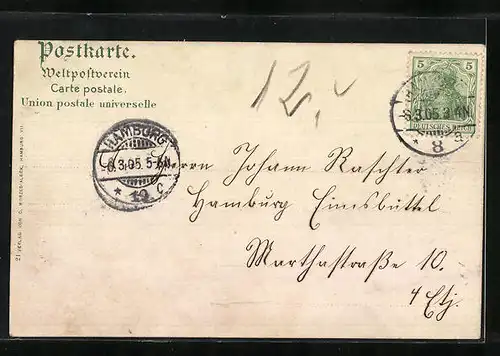 Postkarte.
Weltpostverein
Carte postale.
Union postale universelle
12.
5 5
DEUTSCHES REICH
6.3.05.3-4N
* 8
HAMBURG
6.3.05.5-6N
* 19 c
Herrn Johann Raschter
Hamburg Eimsbüttel
Marthastraße 10.
4 Etj.